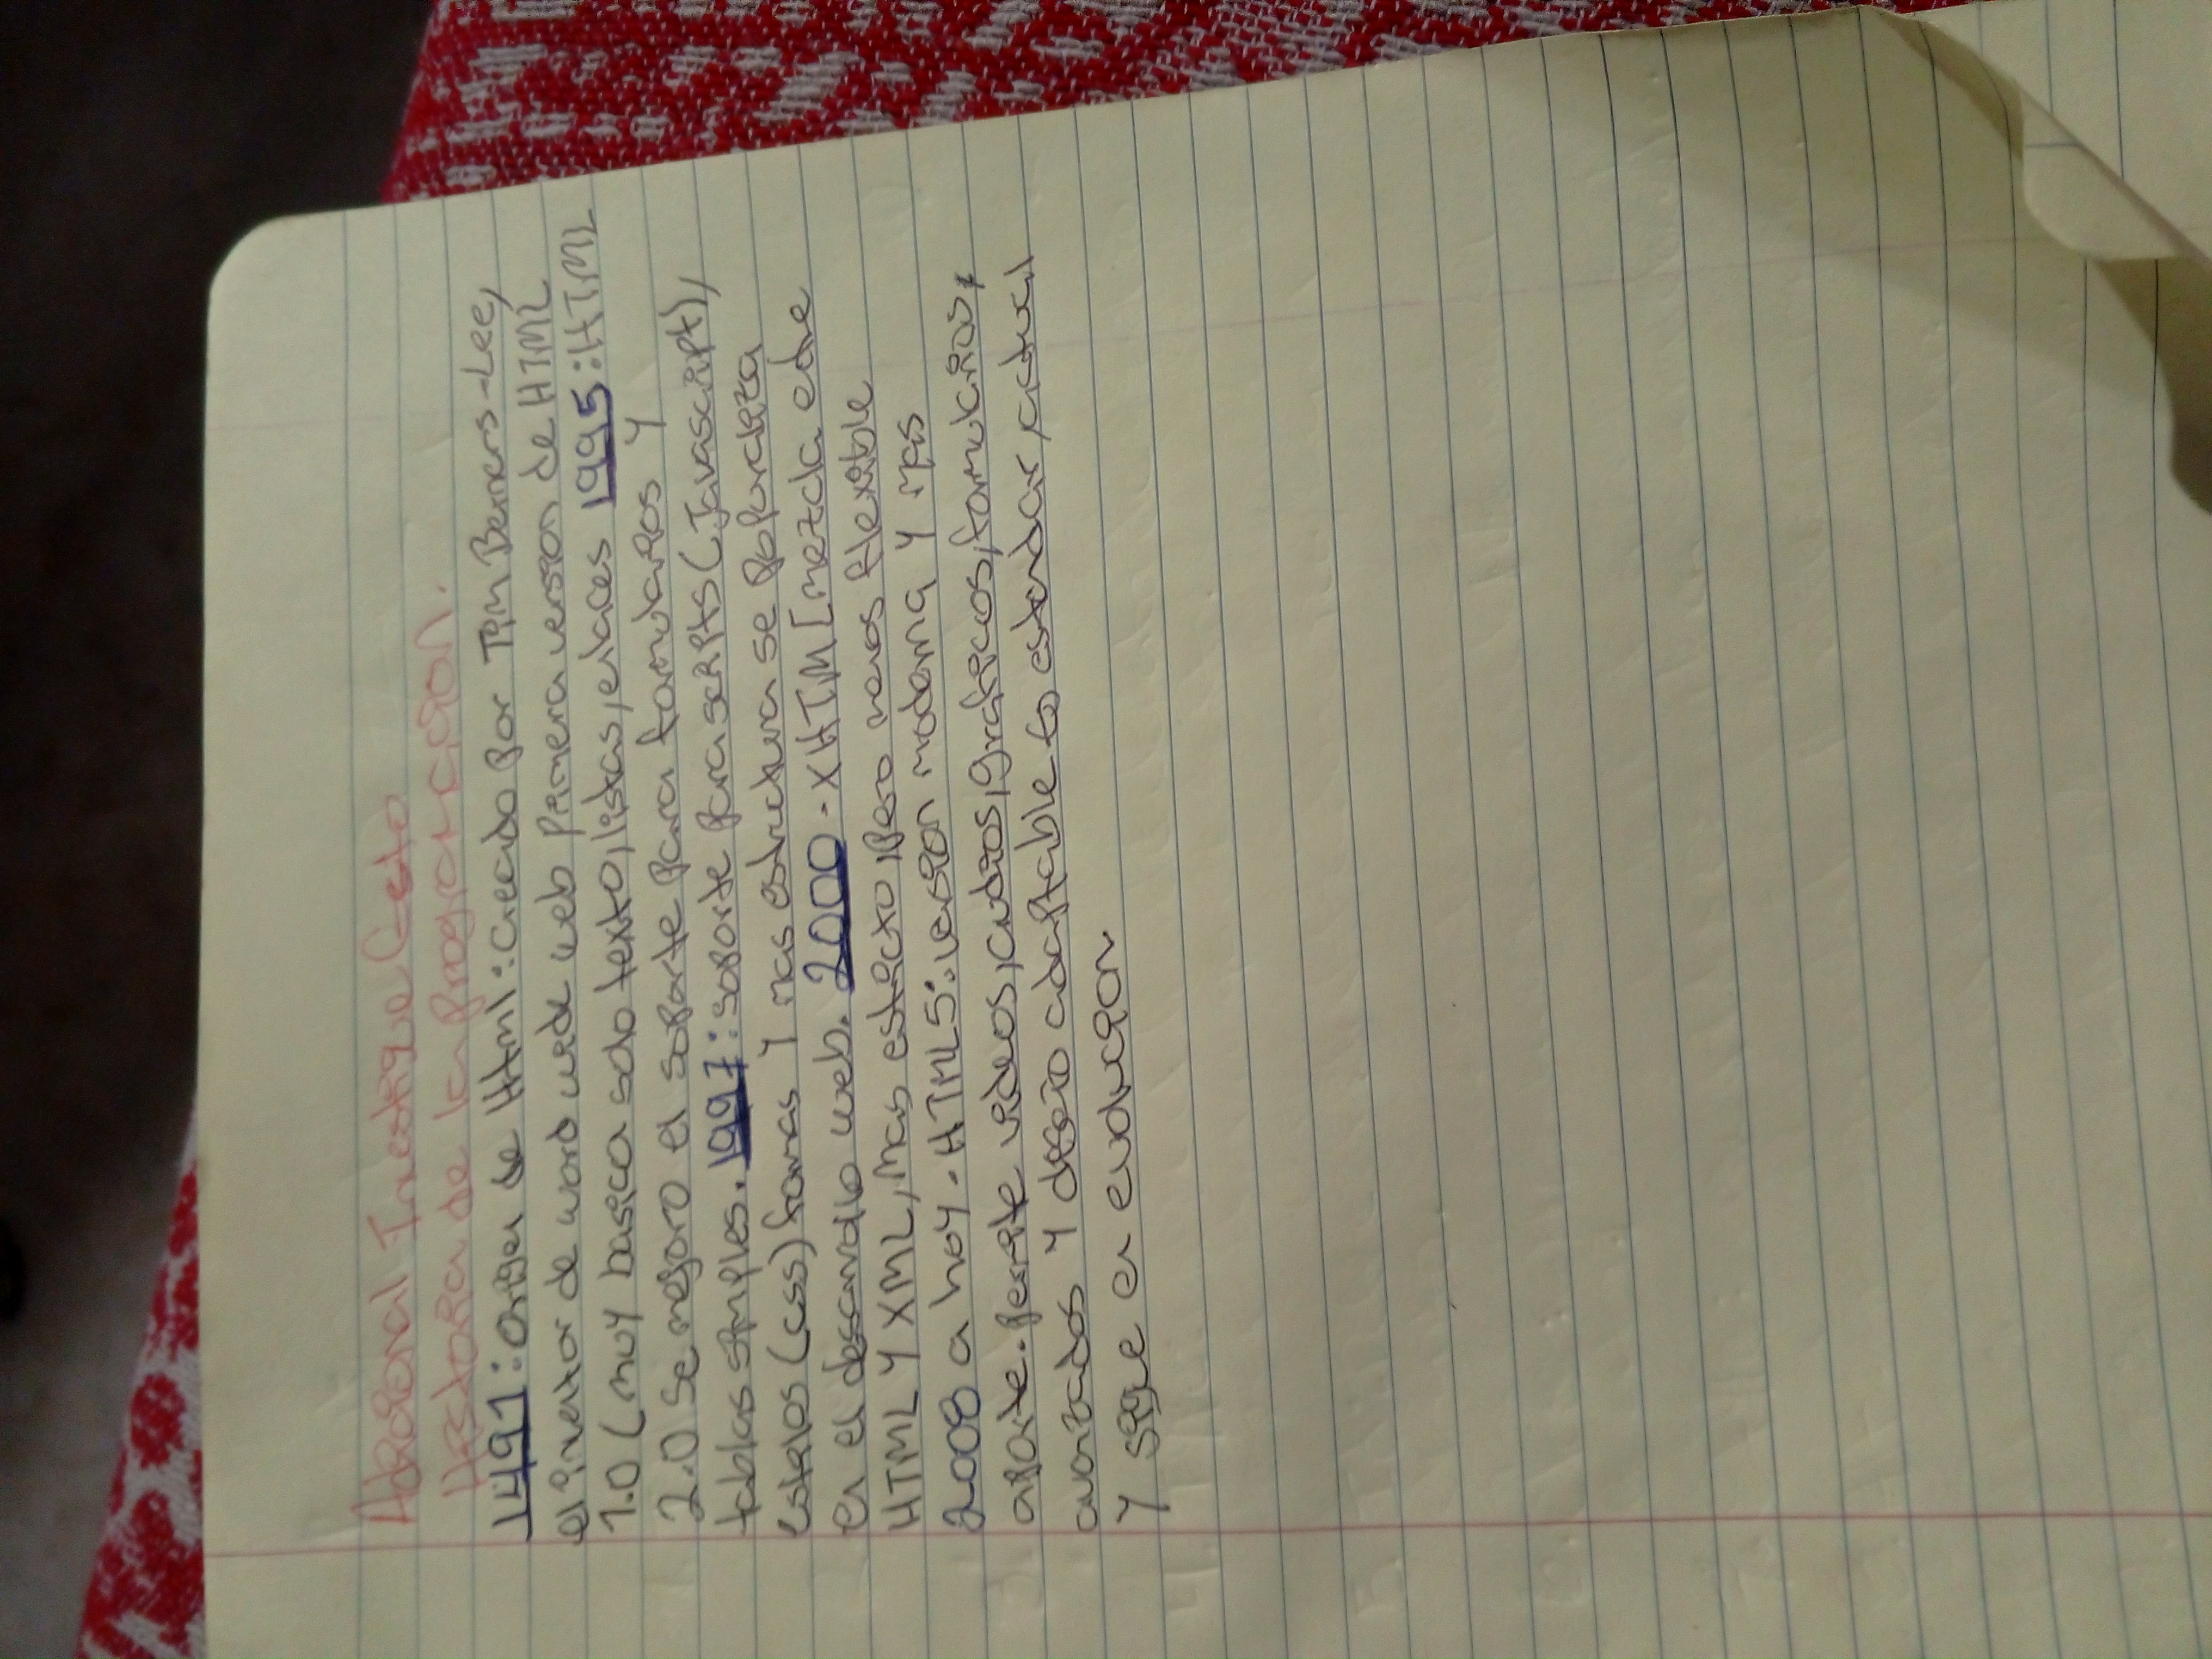 Adicional Investigue Esto
Historia de la programación.
1491: origen de Html: creado por Tim Berners-Lee,
el inventor de word wide web primera version de HTML
1.0 (muy basica solo texto, listas, enlaces 1995: HTML
2.0 Se mejoro el soporte para formularios y
tablas simples. 1997: soporte para scripts (Javascript),
Estilos (css) frames y mas estructura se populariza
en el desarrollo web. 2000 - XHTML [mezcla entre
HTML Y XML, mas estricto pero menos flexible
2008 a hoy - HTML5: version moderna y mas
aparte. permite videos, audios, graficos, formularios,
avanzados y diseño adaptable es estandar actual
y sigue en evolucion